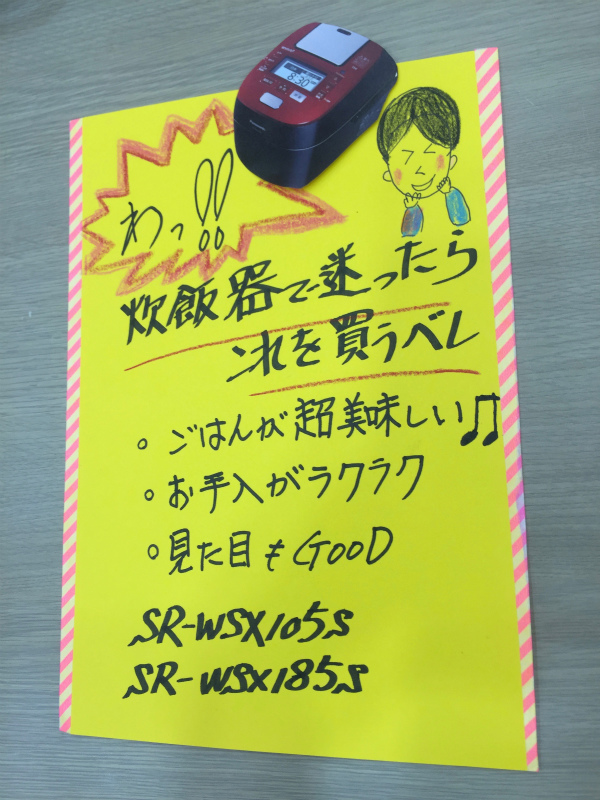 8:30
わっ!!
炊飯器で迷ったら
これを買うべし
。ごはんが超美味しい♫
。お手入がラクラク
。見た目もGOOD
SR-WSX105S
SR-WSX185S